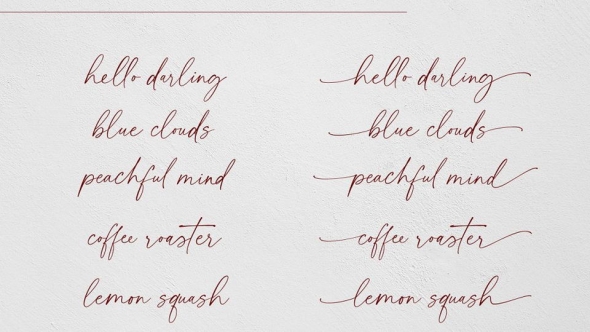 hello darling hello darling
blue clouds blue clouds
peachful mind peachful mind
coffee roaster coffee roaster
lemon squash lemon squash